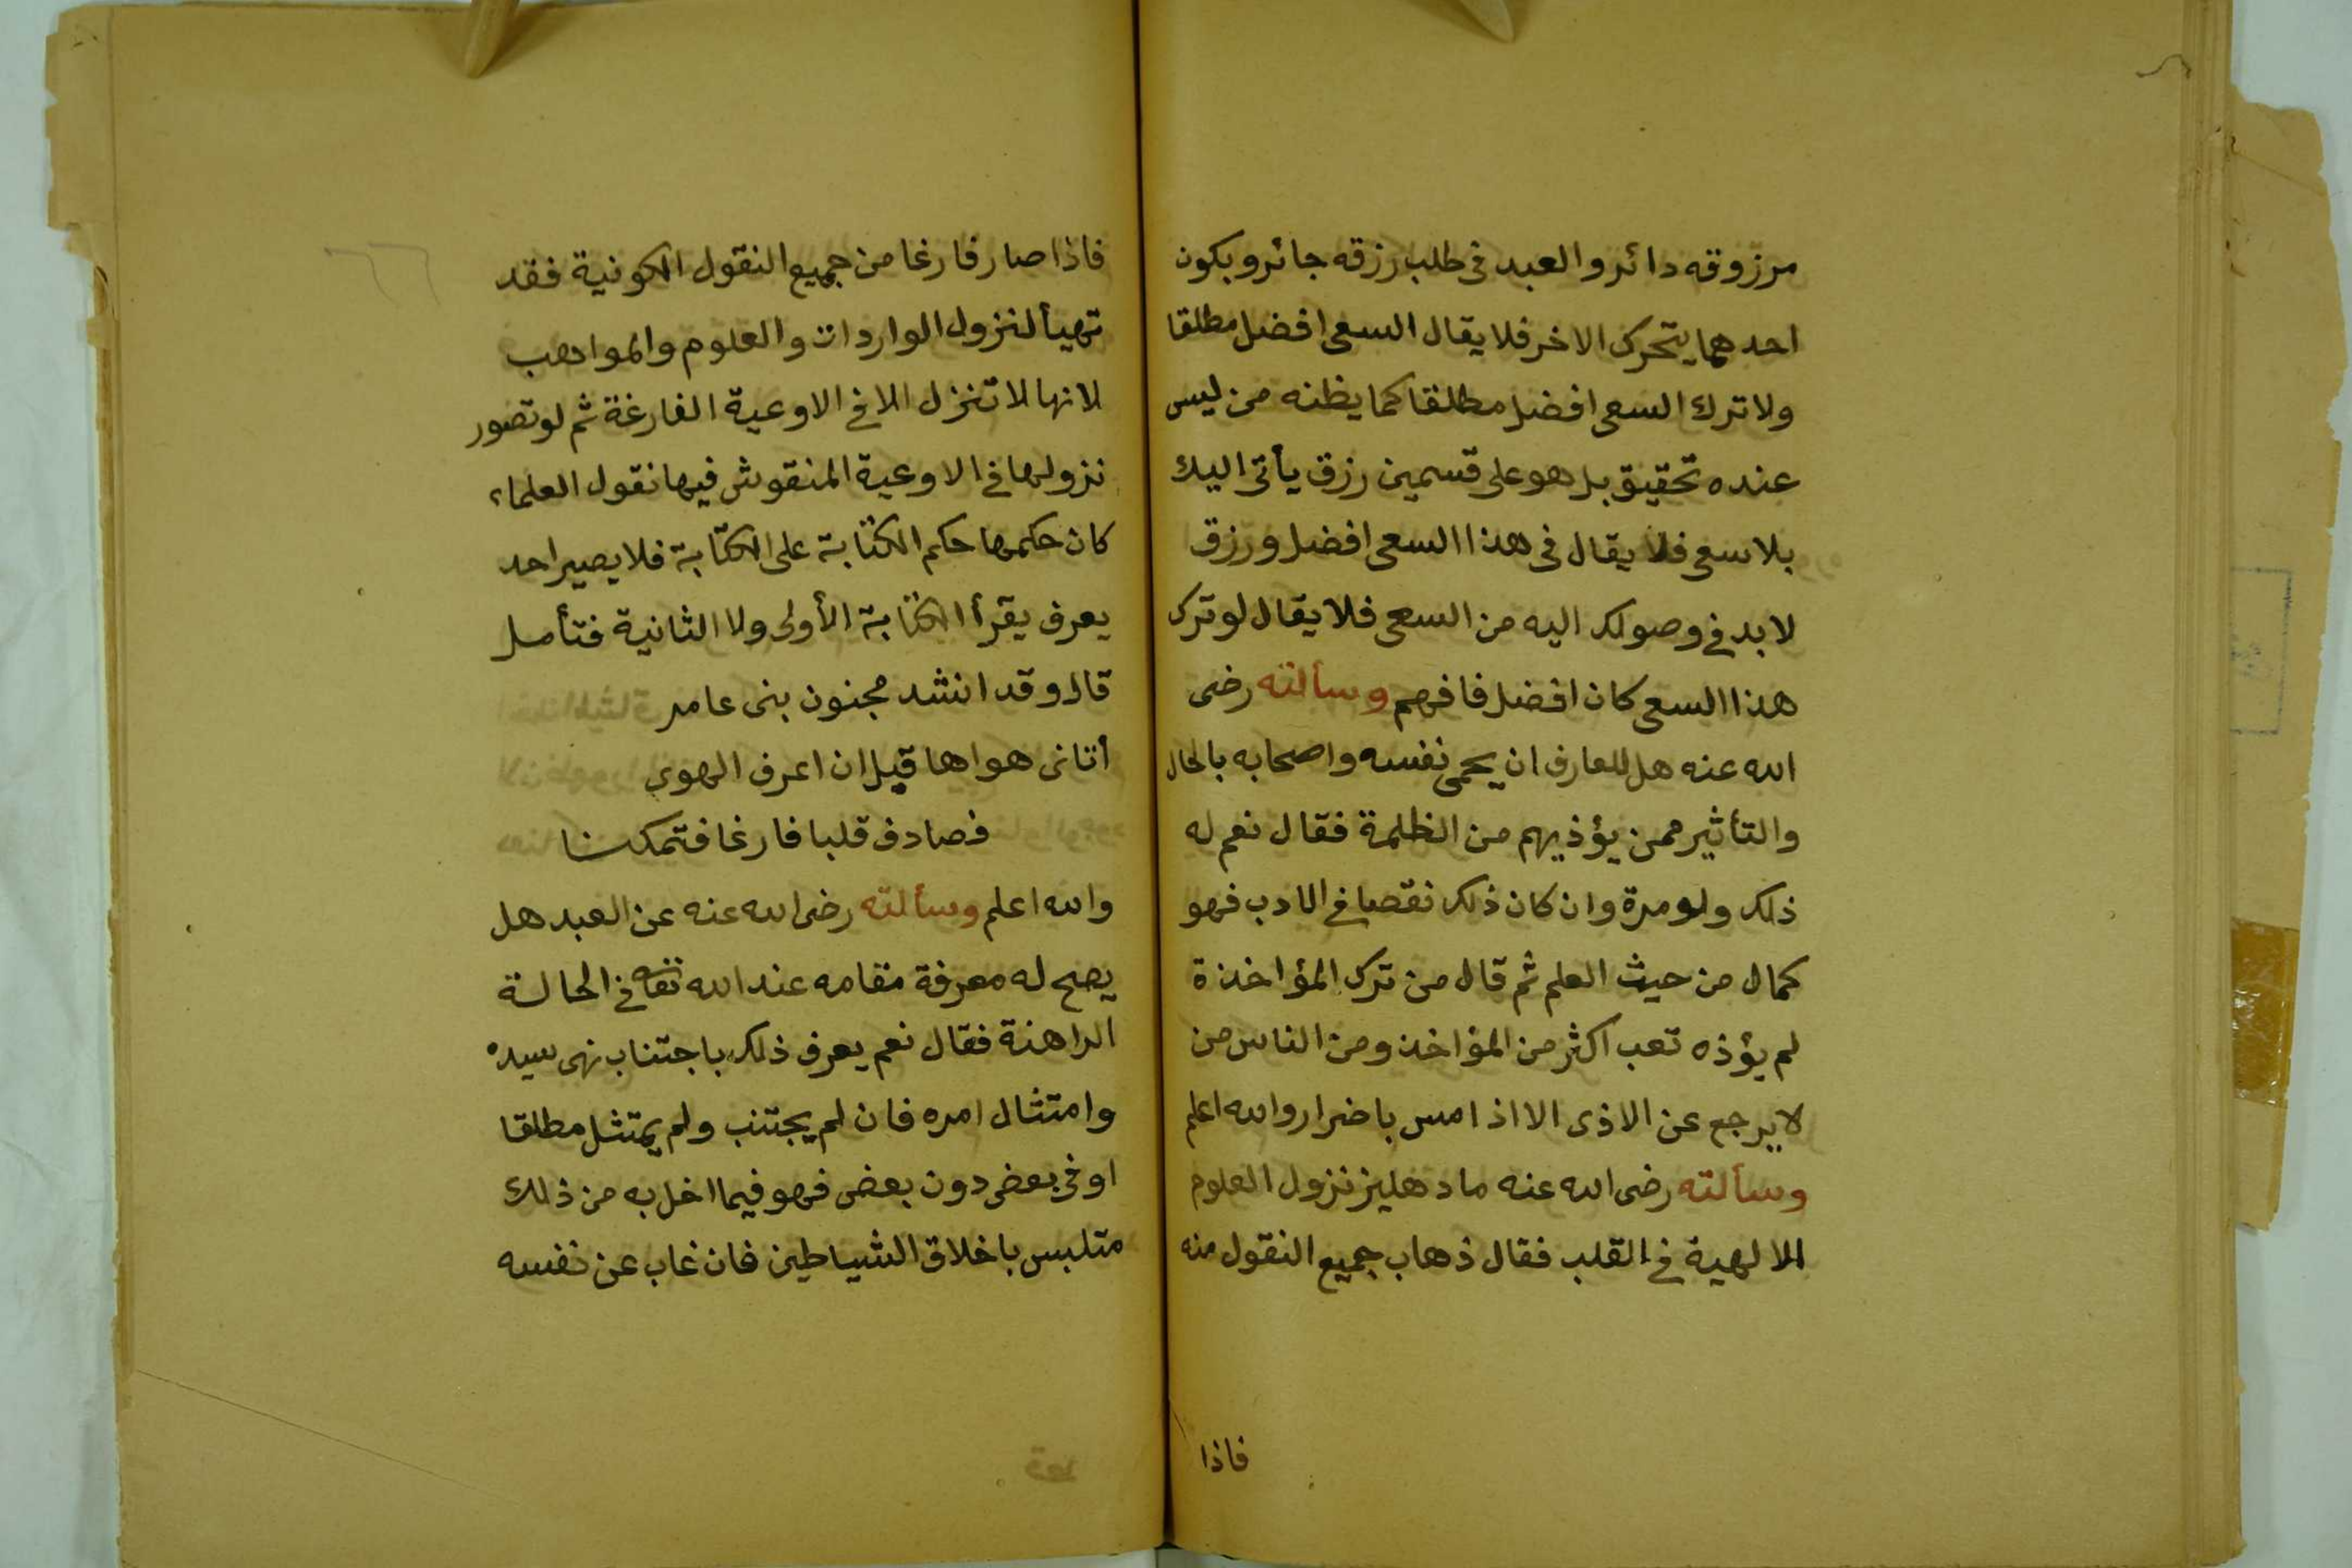 مرزوقه دائر والعبد فى طلب رزقه جائر وبكون
احدهما يتحرك الاخر فلا يقال السعى افضل مطلقا
ولا ترك السعى افضل مطلقا كما يظنه من ليس
عنده تحقيق بل هو على قسمين رزق يأتى اليك
بلا سعى فلا يقال فى هذا السعى افضل ورزق
لا بد فى وصولك اليه من السعى فلا يقال لو ترك
هذا السعى كان افضل فافهم وسألته رضى
الله عنه هل للعارف ان يحمى نفسه واصحابه بالحال
والتأثير ممن يؤذيهم من الظلمة فقال نعم له
ذلك ولو مرة وان كان ذلك نقصا فى الادب فهو
كمال من حيث العلم ثم قال من ترك المؤاخذة
لم يؤذه تعب اكثر من المؤاخذ ومن الناس من
لا يرجع عن الاذى الا اذا مس باضرار والله اعلم
وسألته رضى الله عنه ما دهليز نزول العلوم
الالهية فى القلب فقال ذهاب جميع النقول منه
فاذا
٦٦
فاذا صار فارغا من جميع النقول الكونية فقد
تهيأ لنزول الواردات والعلوم والمواهب
لانها لا تنزل الا فى الاوعية الفارغة ثم لو تصور
نزولها فى الاوعية المنقوش فيها نقول العلماء
كان حكمها حكم الكتابة على الكتابة فلا يصير احد
يعرف يقرأ الكتابة الأولى ولا الثانية فتأمل
قال وقد انشد مجنون بنى عامر
أتانى هواها قبل ان اعرف الهوى
فصادف قلبا فارغا فتمكنا
والله اعلم وسألته رضى الله عنه عن العبد هل
يصح له معرفة مقامه عند الله تعه فى الحالة
الراهنة فقال نعم يعرف ذلك باجتناب نهى سيده
وامتثال امره فان لم يجتنب ولم يمتثل مطلقا
او فى بعض دون بعض فهو فيما اخل به من ذلك
متلبس باخلاق الشياطين فان غاب عن نفسه